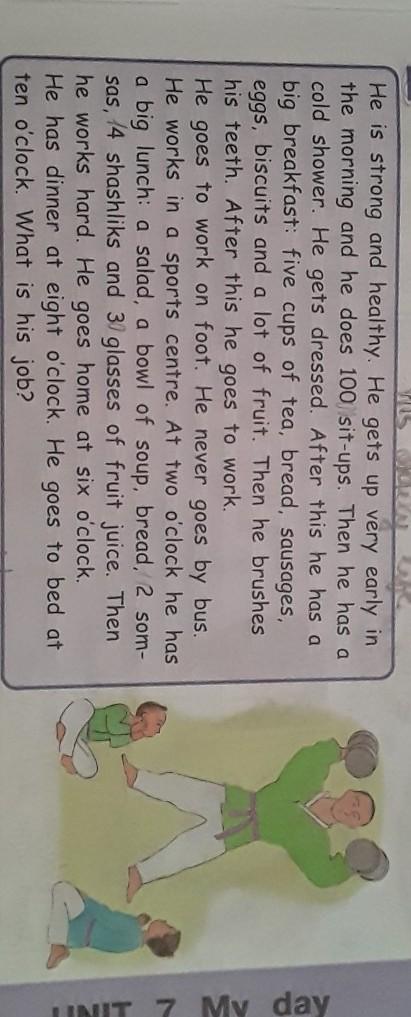 He is strong and healthy. He gets up very early in
the morning and he does 100 sit-ups. Then he has a
cold shower. He gets dressed. After this he has a
big breakfast: five cups of tea, bread, sausages,
eggs, biscuits and a lot of fruit. Then he brushes
his teeth. After this he goes to work.
He goes to work on foot. He never goes by bus.
He works in a sports centre. At two o'clock he has
a big lunch: a salad, a bowl of soup, bread, 2 som-
sas, 4 shashliks and 3 glasses of fruit juice. Then
he works hard. He goes home at six o'clock.
He has dinner at eight o'clock. He goes to bed at
ten o'clock. What is his job?
UNIT 7 My day